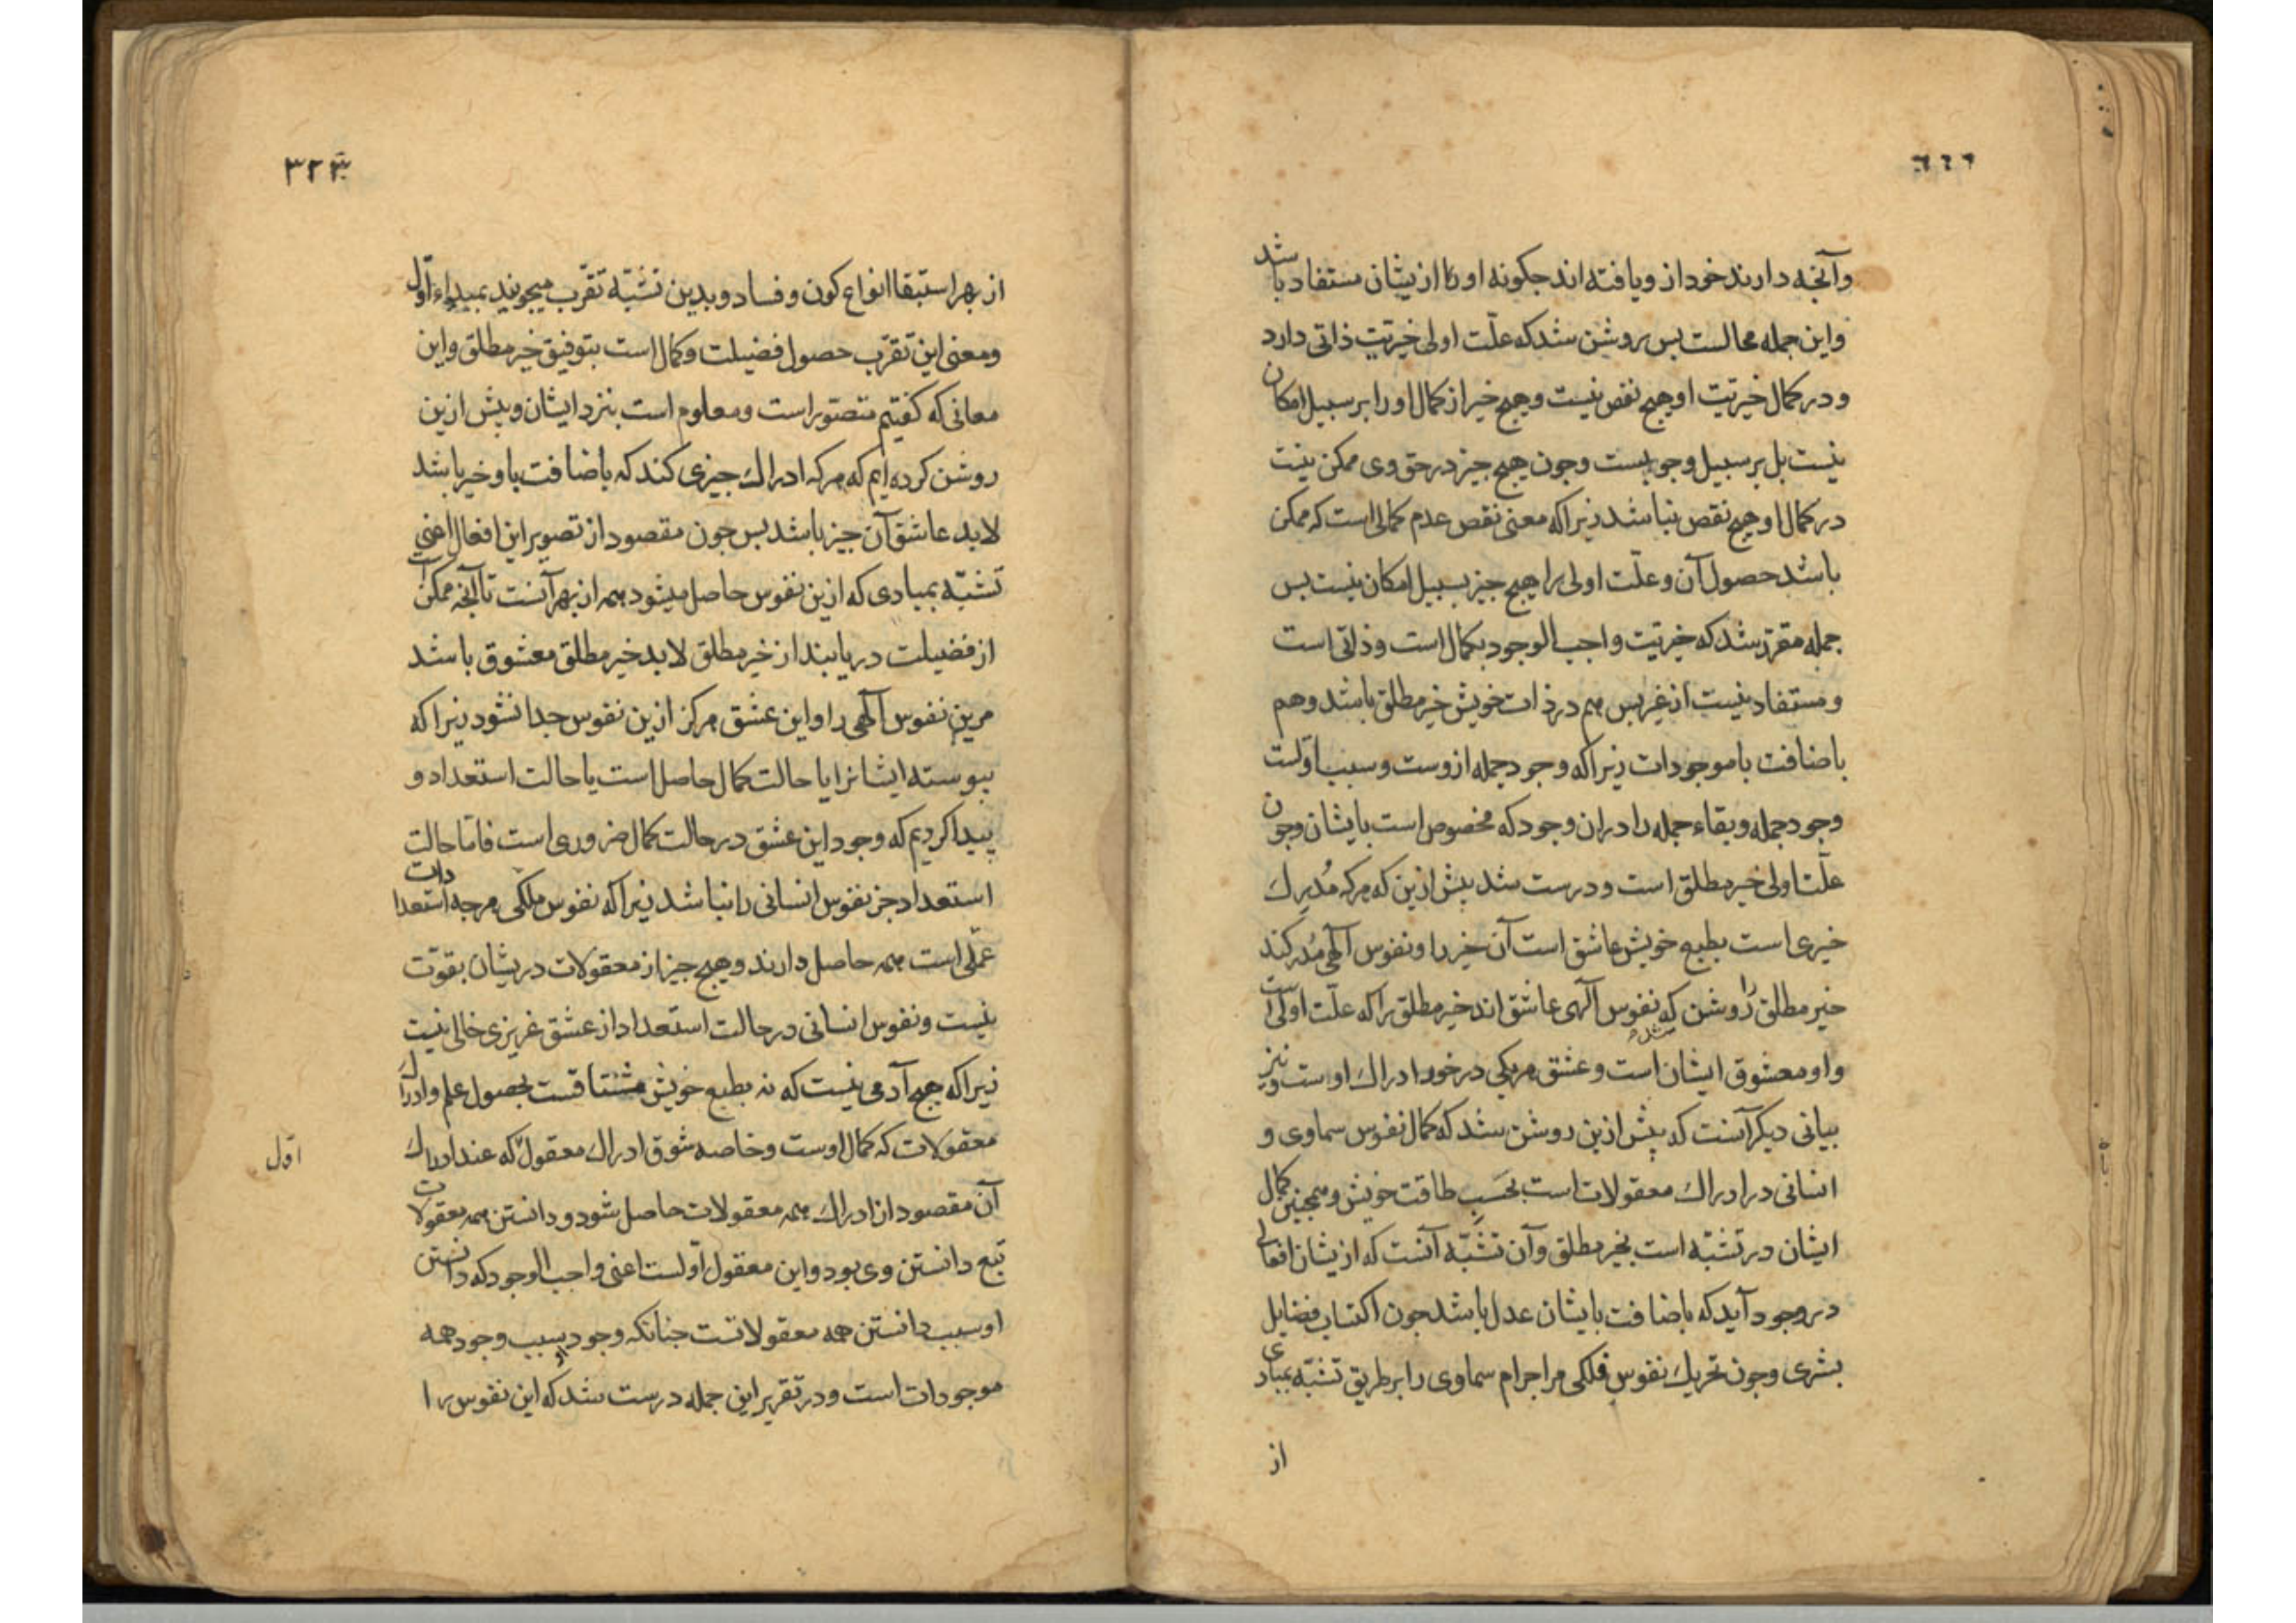 ٣٢٢
وآنجه دارند خود از و یافته اند جکونه او را از یشان مستفاد باشد
واین جمله محالست بس روشن شد که علّت اولی خیریّت ذاتی دارد
و در کمال خیریّت او هیج نقص نیست وهیج خیر از کمال او را بر سبیل امکان
نیست بل بر سبیل وجوبست وجون هیج جیز در حق وی ممکن نیست
در کمال او هیج نقص نباشد زیرا که معنی نقص عدم کمالی است که ممکن
باشد حصول آن وعلّت اولی را هیج جیز بسبیل امکان نیست بس
جمله مقرّر شد که خیریّت واجب الوجود بکمال است وذاتی است
ومستفاد نیست از غیر بس هم در ذات خویش خیر مطلق باشد وهم
باضافت با موجودات زیرا که وجود جمله از وست وسبب اوّلست
وجود جمله وبقاء جمله را در ان وجود که مخصوص است بایشان وجون
علّت اولی خیر مطلق است ودرست شد بیش ازین که هرکه مُدرِك
خیری است بطبع خویش عاشق است آن خیر را ونفوس آلهی مُدرکند
خیر مطلق را روشن شد که نفوس آلهی عاشق اند خیر مطلق را که علّت اولی است
واو معشوق ایشان است وعشق هر یکی در خور ادراك اوست ونیز
بیانی دیکر آنست که بیش ازین روشن شد که کمال نفوس سماوی و
انسانی در ادراك معقولات است بحَسَبِ طاقت خویش وهمجنین کمال
ایشان در تشبّه است بخیر مطلق وآن تشبّه آنست که از یشان افعالی
در وجود آید که باضافت بایشان عدل باشد جون اکتساب فضایل
بشری وجون تحریك نفوس فلکی مر اجرام سماوی را بر طریق تشبّه بمبادی
از
٣٢٣
از بهر استبقا انواع کون وفساد وبدین تشبّه تقرّب میجویند بمبداء اوّل
ومعنی این تقرّب حصول فضیلت وکمال است بتوفیق خیر مطلق واین
معانی که کفتیم متصوّر است ومعلوم است بنزد ایشان وبیش ازین
روشن کرده ایم که هرکه ادراك جیزی کند که باضافت باو خیر باشد
لابد عاشق آن جیز باشد بس جون مقصود از تصویر این افعال اعنی
تشبّه بمبادی که ازین نفوس حاصل میشود همه از بهر آنست تا آنجه ممکن است
از فضیلت دریابند از خیر مطلق لابد خیر مطلق معشوق باشد
مرین نفوس آلهی را واین عشق هرکز ازین نفوس جدا نشود زیرا که
بیوسته ایشانرا یا حالت کمال حاصل است یا حالت استعداد و
بیدا کردیم که وجود این عشق در حالت کمال ضروری است فامّا حالت
استعداد جز نفوس انسانی را نباشد زیرا که نفوس ملکی هرجه استعدادات
عملی است همه حاصل دارند وهیج جیز از معقولات در یشان بقوّت
نیست ونفوس انسانی در حالت استعداد از عشق غریزی خالی نیست
زیرا که هیج آدمی نیست که نه بطبع خویش مشتاقست بحصول علم وادراك
معقولات که کمال اوست وخاصه شوق ادراك معقول که عند ادراك
اوّل
آن مقصود از ادراك همه معقولات حاصل شود ودانستن همه معقولات
تبع دانستن وی بود واین معقول اوّلست اعنی واجب الوجود که دانستن
او سبب دانستن همه معقولاتست جنانکه وجود او سبب وجود همه
موجودات است ودر تقریر این جمله درست شد که این نفوس را